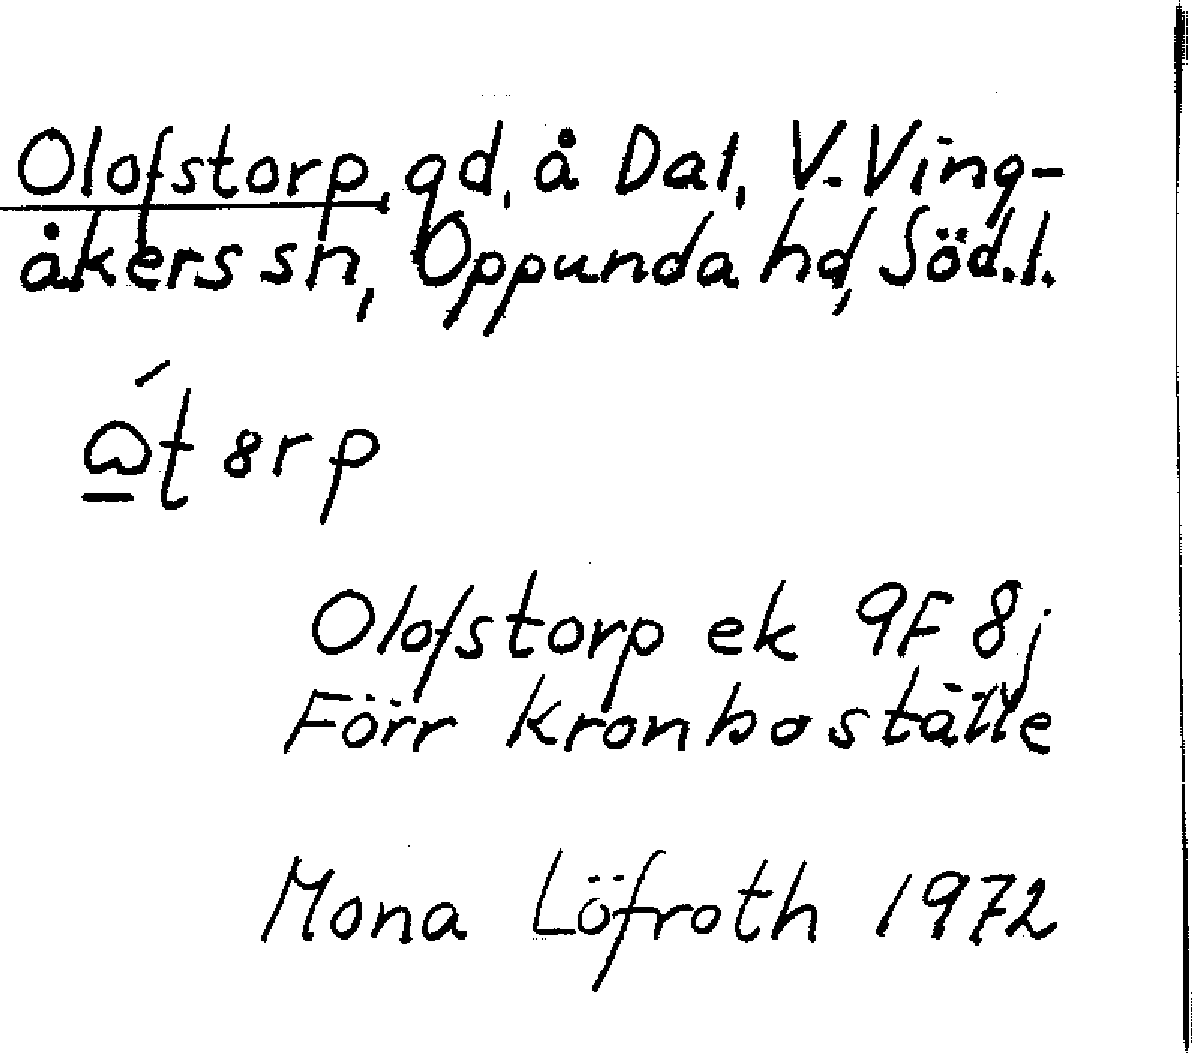 Olofstorp, gd, å Dal, V. Ving-
åkers sn, Oppunda hd, Söd.l.
Olofstorp ek 9F 8j
Förr kronboställe
Mona Löfroth 1972